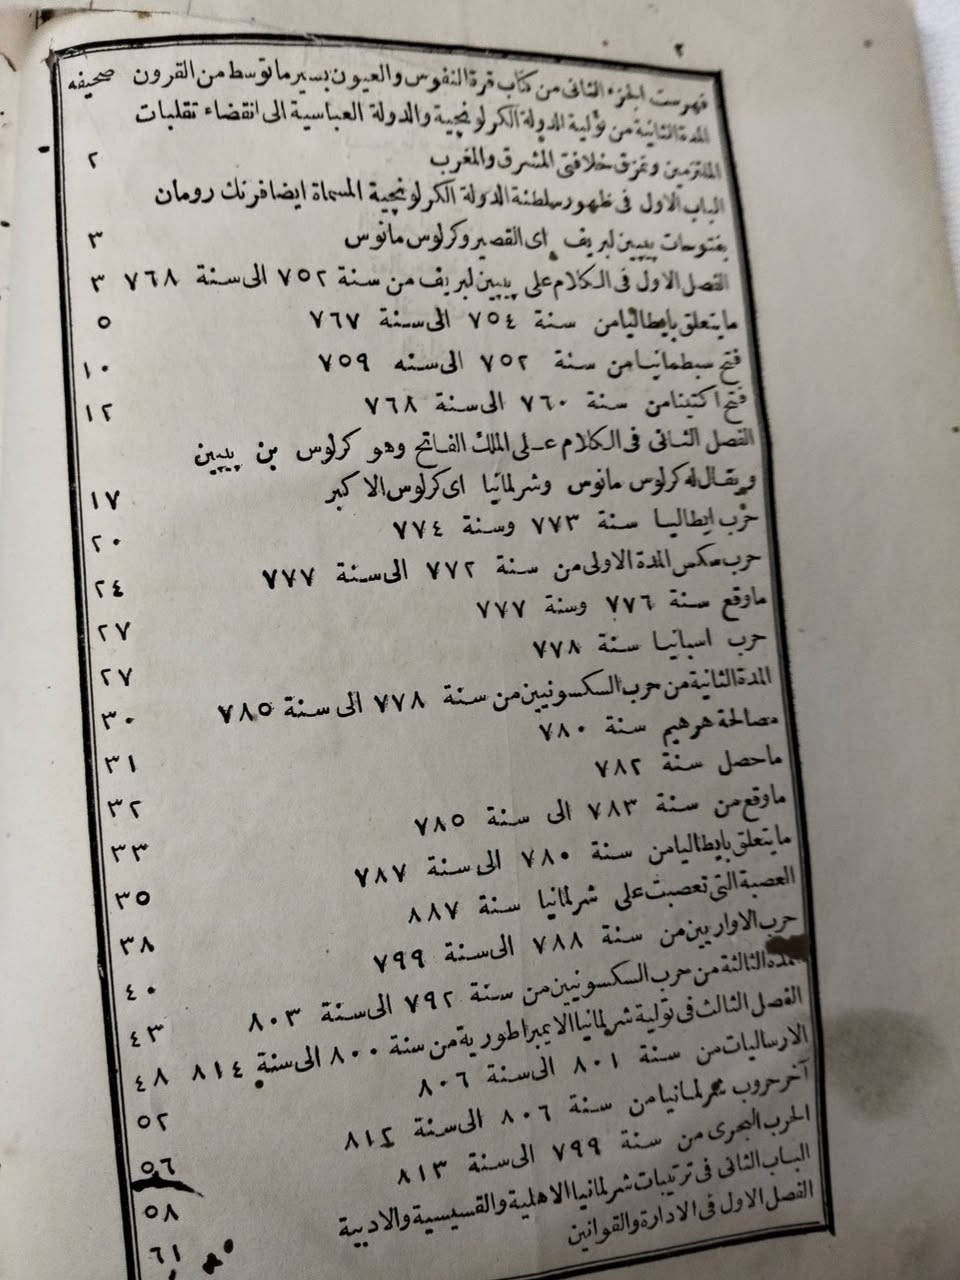 ٢
فهرست الجزء الثانى من كتاب قرة النفوس والعيون بسير ما توسط من القرون صحيفه
المدة الثانية من تولية الدولة الكرلونجية والدولة العباسية الى انقضاء تقلبات
الملتزمين وتمزق خلافتى المشرق والمغرب ٢
الباب الاول فى ظهور سلطنة الدولة الكرلونجية المسماة ايضا فرنك رومان
بفتوحات پيپين لبريف اى القصير وكرلوس مانوس ٣
الفصل الاول فى الكلام على پيپين لبريف من سنة ٧٥٢ الى سنة ٧٦٨ ٣
ما يتعلق بايطاليا من سنة ٧٥٤ الى سنة ٧٦٧ ٥
فتح سبطمانيا من سنة ٧٥٢ الى سنه ٧٥٩ ١٠
فتح اكتينا من سنة ٧٦٠ الى سنة ٧٦٨ ١٢
الفصل الثانى فى الكلام على الملك الفاتح وهو كرلوس بن پيپين
ويقال له كرلوس مانوس وشرلمانيا اى كرلوس الاكبر ١٧
حرب ايطاليا سنة ٧٧٣ وسنة ٧٧٤ ٢٠
حرب سكس المدة الاولى من سنة ٧٧٢ الى سنة ٧٧٧ ٢٤
ما وقع سنة ٧٧٦ وسنة ٧٧٧ ٢٧
حرب اسبانيا سنة ٧٧٨ ٢٧
المدة الثانية من حرب السكسونيين من سنة ٧٧٨ الى سنة ٧٨٥ ٣٠
مصالحة هرهيم سنة ٧٨٠ ٣١
ما حصل سنة ٧٨٢ ٣٢
ما وقع من سنة ٧٨٣ الى سنة ٧٨٥ ٣٣
ما يتعلق بايطاليا من سنة ٧٨٠ الى سنة ٧٨٧ ٣٥
العصبة التى تعصبت على شرلمانيا سنة ٨٨٧ ٣٨
حرب الاواريين من سنة ٧٨٨ الى سنة ٧٩٩ ٤٠
المدة الثالثة من حرب السكسونيين من سنة ٧٩٢ الى سنة ٨٠٣ ٤٣
الفصل الثالث فى تولية شرلمانيا الايمبراطورية من سنة ٨٠٠ الى سنة ٨١٤ ٤٨
الارساليات من سنة ٨٠١ الى سنة ٨٠٦ ٥٢
آخر حروب شرلمانيا من سنة ٨٠٦ الى سنة ٨١٢ ٥٦
الحرب البحرى من سنة ٧٩٩ الى سنة ٨١٣ ٥٨
الباب الثانى فى ترتيبات شرلمانيا الاهلية والقسيسية والادبية ٦١
الفصل الاول فى الادارة والقوانين